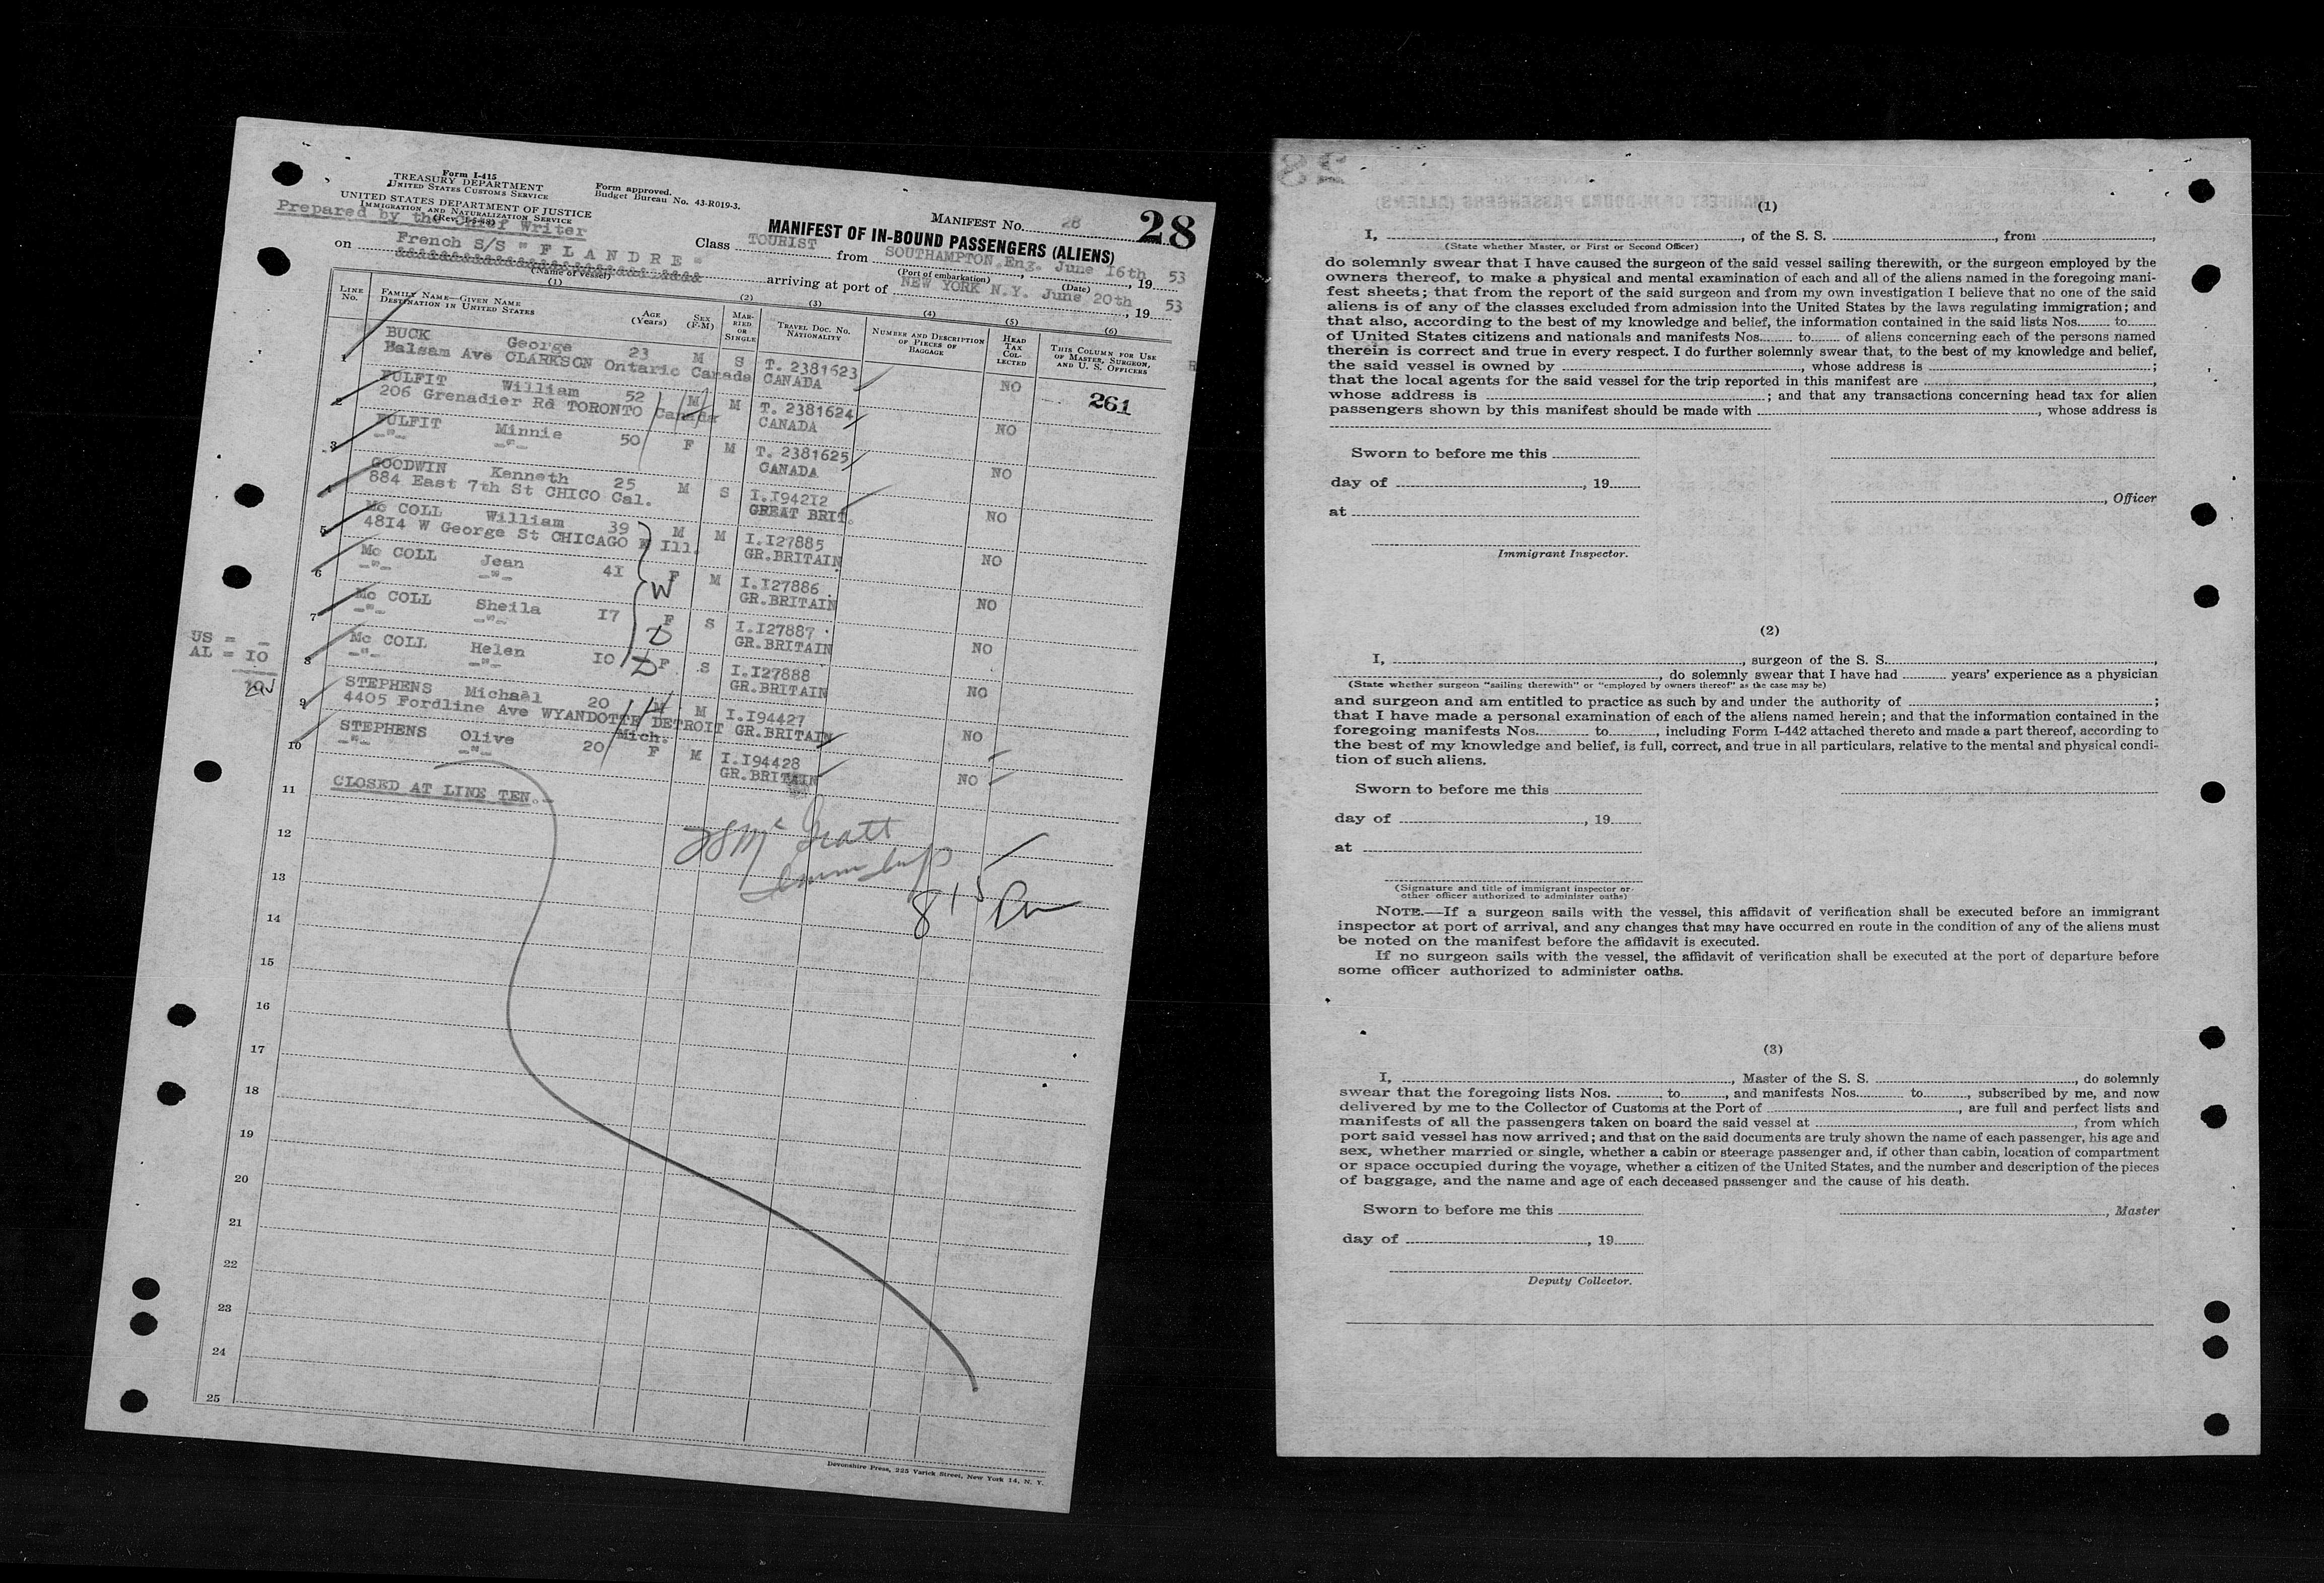 Form I-415
TREASURY DEPARTMENT
UNITED STATES CUSTOMS SERVICE
UNITED STATES DEPARTMENT OF JUSTICE
IMMIGRATION AND NATURALIZATION SERVICE
Form approved.
Budget Bureau No. 43-R019-3.
Prepared by the Chief Writer
MANIFEST No. 28
28
MANIFEST OF IN-BOUND PASSENGERS (ALIENS)
on French S/S " F L A N D R E "
(Name of vessel)
Class TOURIST from SOUTHAMPTON.Eng. June I6th, 19 53
(Port of embarkation) (Date)
arriving at port of NEW YORK N.Y. June 20th, 19 53
(1) (2) (3) (4) (5) (6)
LINE No.
FAMILY NAME—GIVEN NAME
DESTINATION IN UNITED STATES
AGE (Years)
SEX (F-M)
MARRIED OR SINGLE
TRAVEL DOC. NO. NATIONALITY
NUMBER AND DESCRIPTION OF PIECES OF BAGGAGE
HEAD TAX COLLECTED
THIS COLUMN FOR USE OF MASTER, SURGEON, AND U. S. OFFICERS
1 BUCK George 23 M S T. 2381623 NO
Balsam Ave CLARKSON Ontario Canada CANADA
261
2 FULFIT William 52 M M T. 2381624 NO
206 Grenadier Rd TORONTO Canada CANADA
3 FULFIT Minnie 50 F M T. 2381625 NO
-"- -"- CANADA
4 GOODWIN Kenneth 25 M S I.I94212 NO
884 East 7th St CHICO Cal. GREAT BRIT.
5 Mc COLL William 39 M M I.I27885 NO
48I4 W George St CHICAGO Ill. GR.BRITAIN
6 Mc COLL Jean 4I F M I.I27886 NO
-"- -"- W GR.BRITAIN
7 Mc COLL Sheila I7 F S I.I27887 NO
-"- -"- D GR.BRITAIN
8 Mc COLL Helen IO D F S I.I27888 NO
-"- -"- GR.BRITAIN
US = -
AL = IO
9 STEPHENS Michaël 20 M M I.I94427 NO
4405 Fordline Ave WYANDOTTE DETROIT Mich. GR.BRITAIN
10 STEPHENS Olive 20 F M I.I94428 NO
-"- -"- GR.BRITAIN
11 CLOSED AT LINE TEN.-
12
13
8 15 Pm
14
15
16
17
18
19
20
21
22
23
24
25
Devonshire Press, 225 Varick Street, New York 14, N. Y.
(1)
I, , of the S. S. , from ,
(State whether Master, or First or Second Officer)
do solemnly swear that I have caused the surgeon of the said vessel sailing therewith, or the surgeon employed by the
owners thereof, to make a physical and mental examination of each and all of the aliens named in the foregoing mani-
fest sheets; that from the report of the said surgeon and from my own investigation I believe that no one of the said
aliens is of any of the classes excluded from admission into the United States by the laws regulating immigration; and
that also, according to the best of my knowledge and belief, the information contained in the said lists Nos. to
of United States citizens and nationals and manifests Nos. to of aliens concerning each of the persons named
therein is correct and true in every respect. I do further solemnly swear that, to the best of my knowledge and belief,
the said vessel is owned by , whose address is ;
that the local agents for the said vessel for the trip reported in this manifest are ,
whose address is ; and that any transactions concerning head tax for alien
passengers shown by this manifest should be made with , whose address is
Sworn to before me this
day of , 19
, Officer
at
Immigrant Inspector.
(2)
I, , surgeon of the S. S. ,
, do solemnly swear that I have had years' experience as a physician
(State whether surgeon "sailing therewith" or "employed by owners thereof" as the case may be)
and surgeon and am entitled to practice as such by and under the authority of ;
that I have made a personal examination of each of the aliens named herein; and that the information contained in the
foregoing manifests Nos. to , including Form I-442 attached thereto and made a part thereof, according to
the best of my knowledge and belief, is full, correct, and true in all particulars, relative to the mental and physical condi-
tion of such aliens.
Sworn to before me this
day of , 19
at
(Signature and title of immigrant inspector or
other officer authorized to administer oaths)
NOTE.—If a surgeon sails with the vessel, this affidavit of verification shall be executed before an immigrant
inspector at port of arrival, and any changes that may have occurred en route in the condition of any of the aliens must
be noted on the manifest before the affidavit is executed.
If no surgeon sails with the vessel, the affidavit of verification shall be executed at the port of departure before
some officer authorized to administer oaths.
(3)
I, , Master of the S. S. , do solemnly
swear that the foregoing lists Nos. to , and manifests Nos. to , subscribed by me, and now
delivered by me to the Collector of Customs at the Port of , are full and perfect lists and
manifests of all the passengers taken on board the said vessel at , from which
port said vessel has now arrived; and that on the said documents are truly shown the name of each passenger, his age and
sex, whether married or single, whether a cabin or steerage passenger and, if other than cabin, location of compartment
or space occupied during the voyage, whether a citizen of the United States, and the number and description of the pieces
of baggage, and the name and age of each deceased passenger and the cause of his death.
Sworn to before me this
, Master
day of , 19
Deputy Collector.